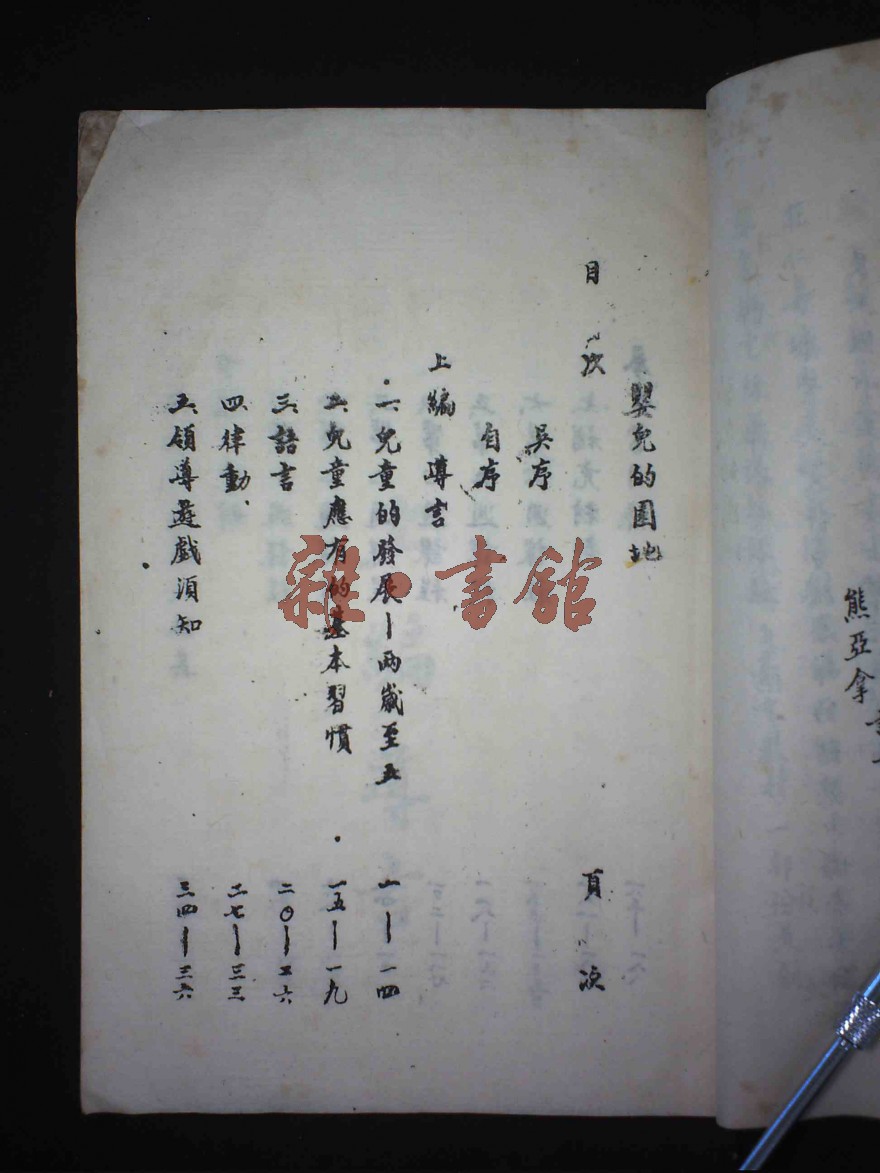 熊亞拿
嬰兒的園地
目次 頁次
吳序
自序
上編 導言
一、兒童的發展—兩歲至五 一—一四
二、兒童應有的基本習慣 一五—一九
三、語言 二〇—二六
四、律動 二七—三三
五、領導遊戲須知 三四—三六
雜·書館